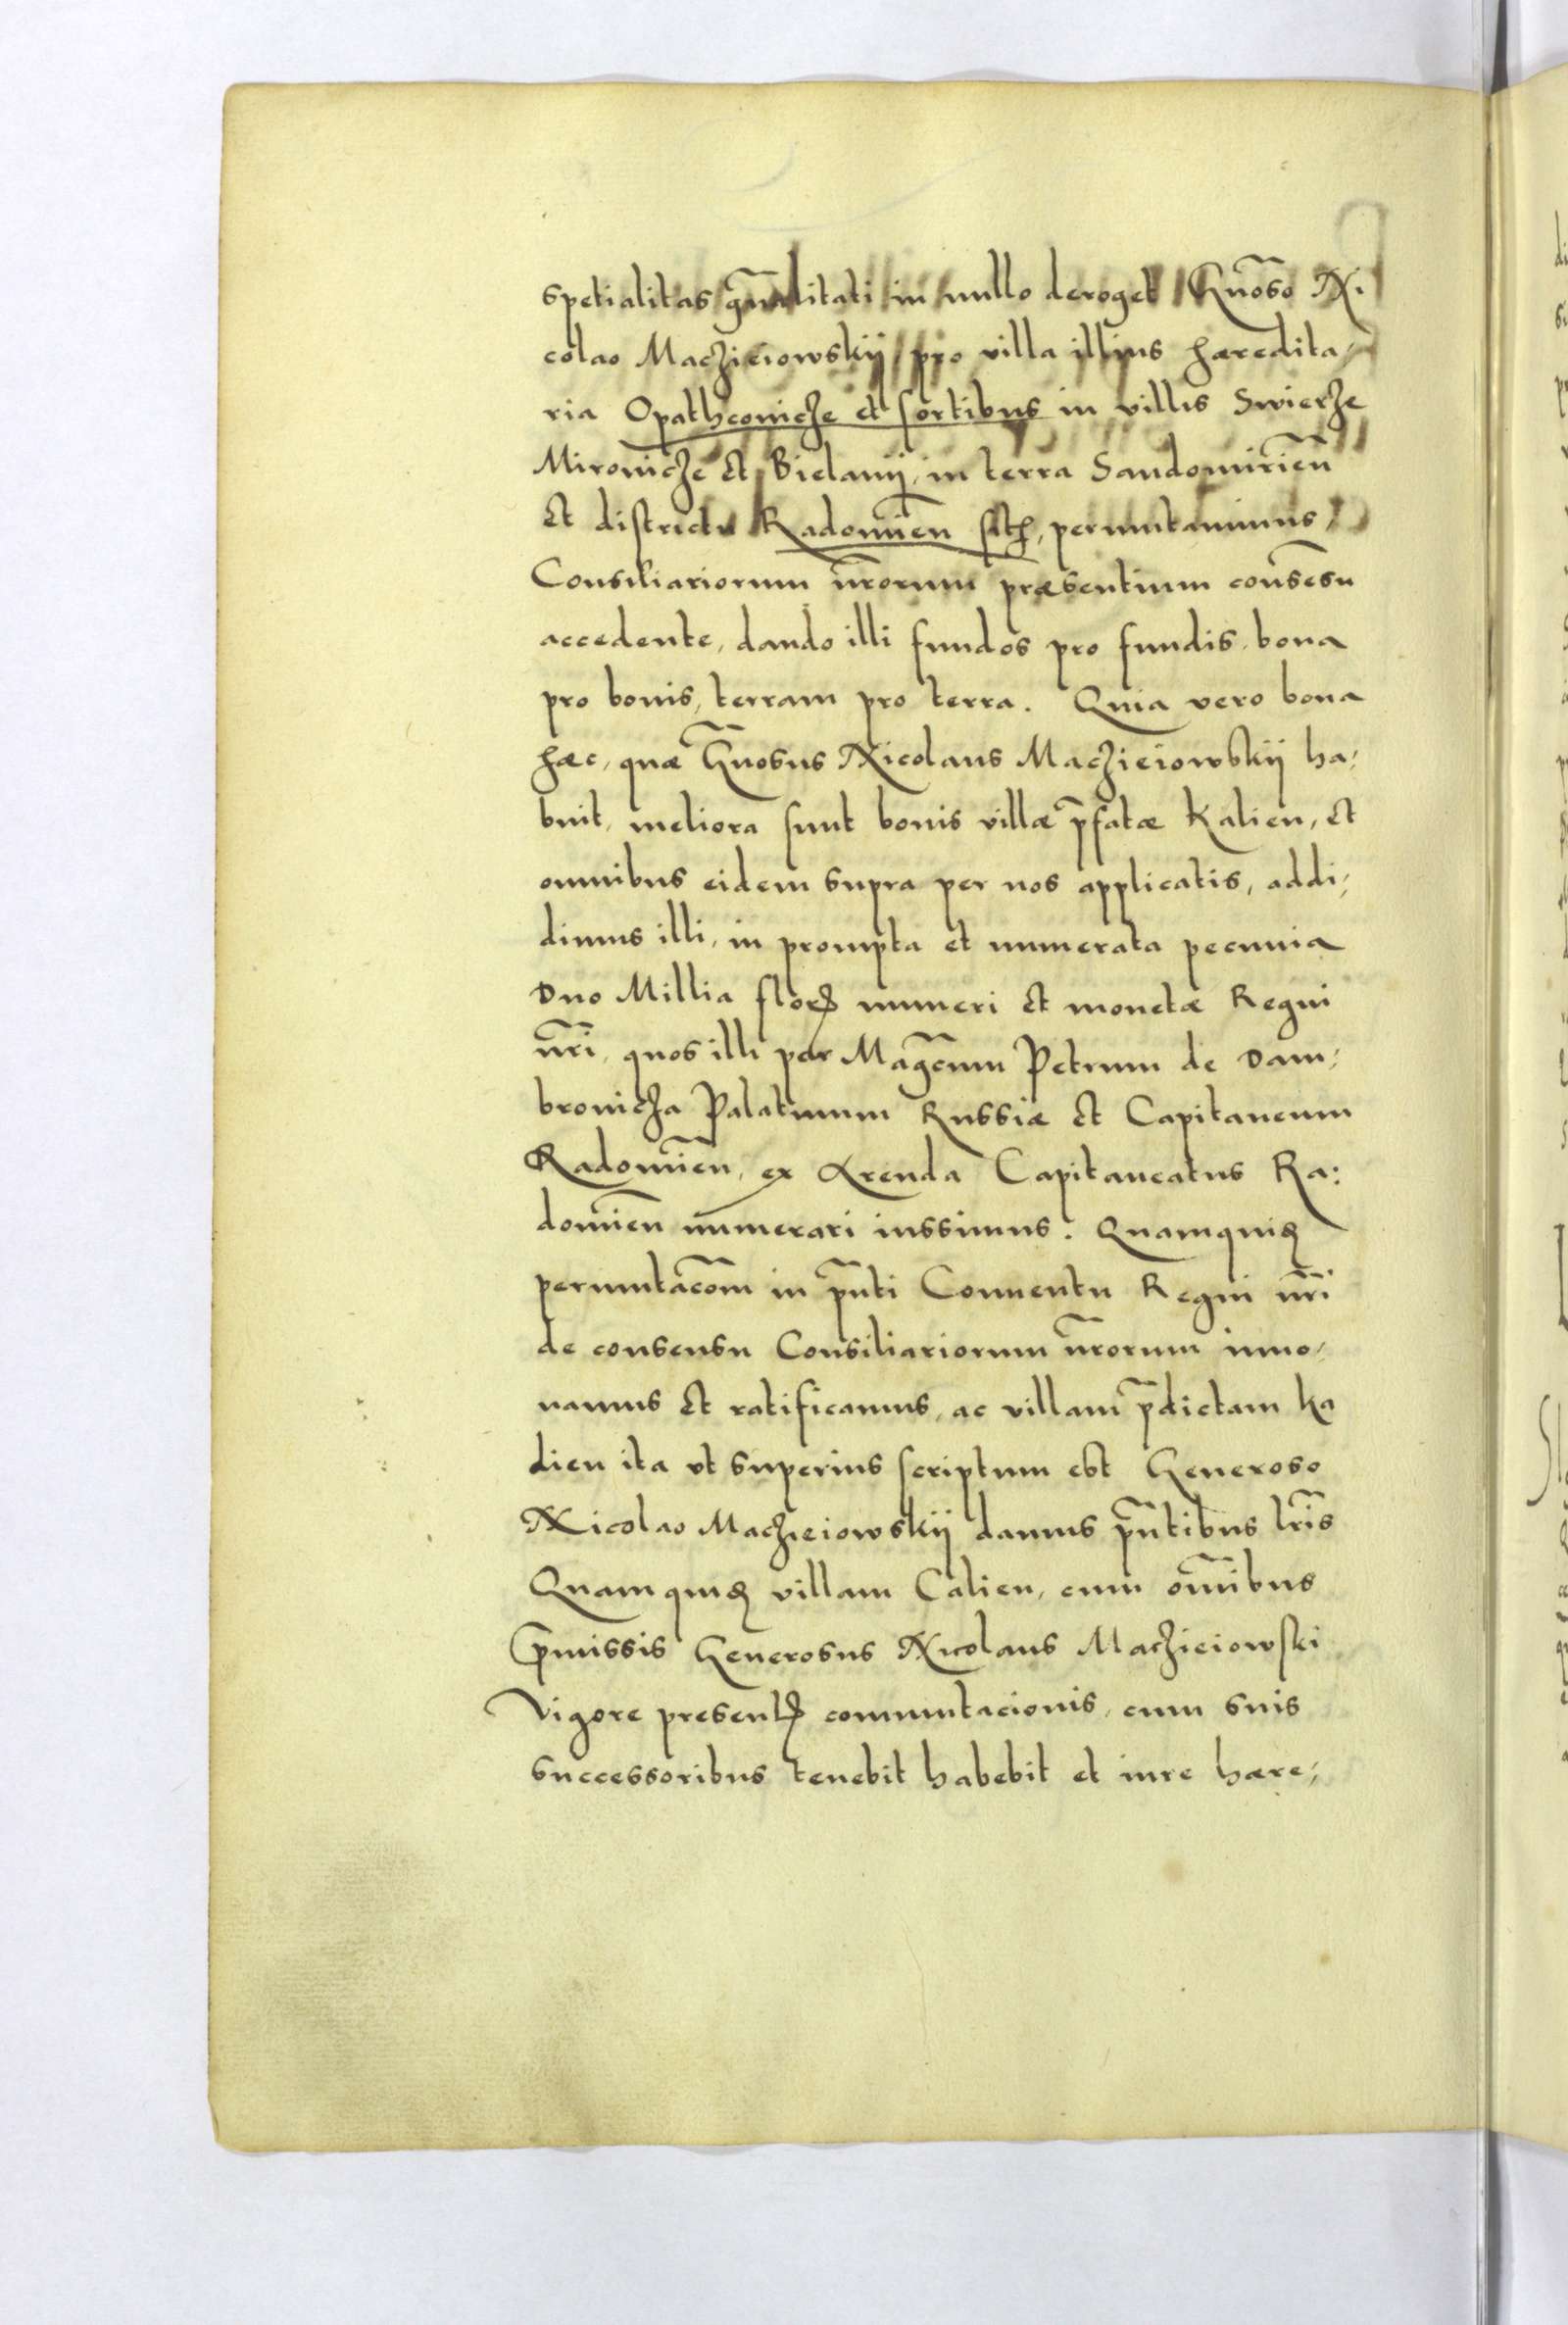 spetialitas gn̄alitati in nullo deroget Gn̄oso Ni
colao Maczieiowskij pro villa illius hæredita,
ria Opathconicze et sortibus in villis Swierze
Mironicze et Bielanij, in terra Sandomirien̄
Et districtu Radomien̄ sitꝭ, permutauimus,
Consiliariorum n̄rorum præsentium consesu
accedente, dando illi fundos pro fundis, bona
pro bonis, terram pro terra. Quia vero bona
hæc, quæ Gn̄osus Nicolaus Maczieiowskij ha,
buit, meliora sunt bonis villæ p̄fatæ Kalien, et
omnibus eidem supra per nos applicatis, addi,
dimus illi, in prompta et numerata pecunia
Duo Millia florꝭ numeri et monetæ Regni
n̄ri, quos illi per Maḡcum Petrum de Dam,
bronicza Palatinum Russiæ et Capitaneum
Radomien̄, ex Arenda Capitaneatus Ra:
domien̄ numerari iussimus. Quamquidꝭ
permutac̄om in p̄nti Conuentu Regni n̄ri
de consensu Consiliariorum n̄rorum inno,
uamus et ratificamus, ac villam p̄dictam Ka
lien ita vt superius scriptum est Generoso
Nicolao Maczieiowskij damus p̄ntibus l̄ris
Quamquidꝭ villam Calien, cum om̄ibus
p̄missis Generosus Nicolaus Maczieiowski
Vigore presentꝭ commutacionis, cum suis
successoribus tenebit habebit et iure hære,